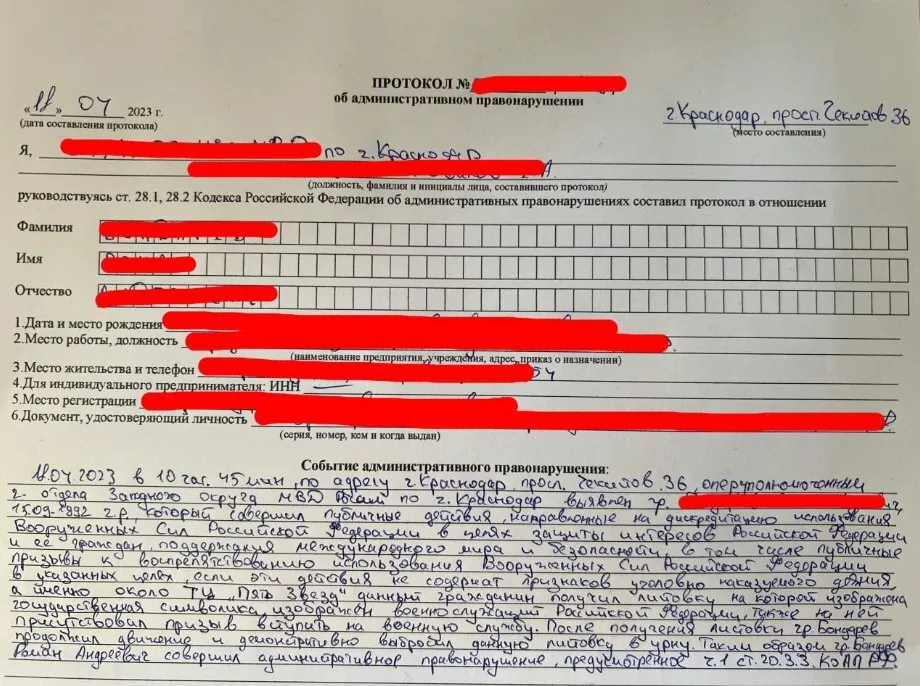 ПРОТОКОЛ №
об административном правонарушении
«11» 04 2023 г.
(дата составления протокола)
г. Краснодар, просп. Чекистов 36
(место составления)
Я, по г. Краснодар
(должность, фамилия и инициалы лица, составившего протокол)
руководствуясь ст. 28.1, 28.2 Кодекса Российской Федерации об административных правонарушениях составил протокол в отношении
Фамилия
Имя
Отчество
1.Дата и место рождения
2.Место работы, должность
(наименование предприятия, учреждения, адрес, приказ о назначении)
3.Место жительства и телефон
4.Для индивидуального предпринимателя: ИНН —
5.Место регистрации
6.Документ, удостоверяющий личность
(серия, номер, кем и когда выдан)
Событие административного правонарушения:
11.04.2023 в 10 час. 45 мин, по адресу г. Краснодар, просп. Чекистов 36, оперуполномоченным
2- отдела Западного округа МВД России по г. Краснодар выявлен гр.
15.09.1992 г.р., который совершил публичные действия, направленные на дискредитацию использования
Вооруженных Сил Российской Федерации в целях защиты интересов Российской Федерации
и ее граждан, поддержания международного мира и безопасности, в том числе публичные
призывы к воспрепятствованию использования Вооруженных Сил Российской Федерации
в указанных целях, если эти действия не содержат признаков уголовно наказуемого деяния,
а именно около ТЦ "Пять Звезд" данный гражданин получил листовку на которой изображена
государственная символика, изображен военнослужащий Российской Федерации, также на ней
присутствовал призыв вступить на военную службу. После получения листовки гр. Бондарев
продолжил движение и демонстративно выбросил данную листовку в урну. Таким образом гр. Бондарев
Роман Андреевич совершил административное правонарушение, предусмотренное ч.1 ст.20.3.3. КоАП РФ